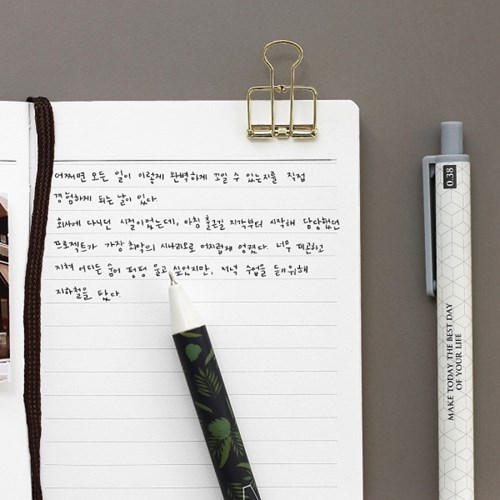 어쩌면 모든 일이 이렇게 완벽하게 꼬일 수 있는지를 직접
경험하게 되는 날이 있다.
회사에 다니던 시절이었는데, 아침 출근길 지각부터 시작해 담당했던
프로젝트가 가장 최악의 시나리오로 어지럽게 엉켰다. 너무 피곤하고
지쳐 어디든 숨어 펑펑 울고 싶었지만, 저녁 수업을 듣기 위해
지하철을 탔다.
0.38
MAKE TODAY THE BEST DAY
OF YOUR LIFE